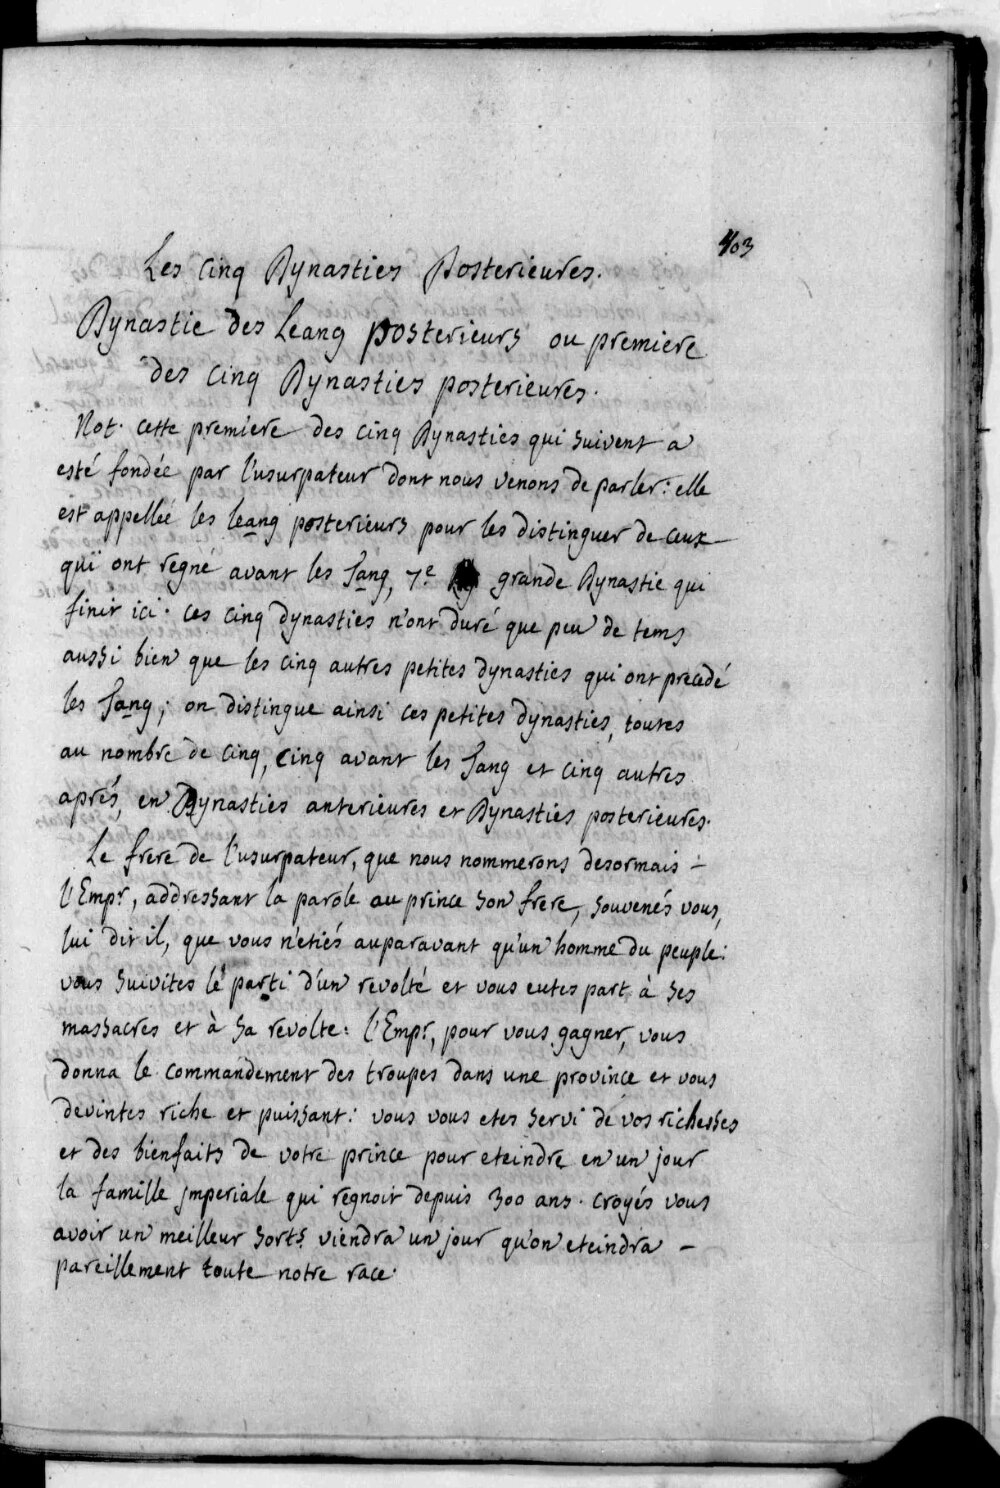 403
Les cinq Dynasties Posterieures.
Dynastie des Leang posterieurs ou premiere
des cinq Dynasties posterieures.
Not. cette premiere des cinq Dynasties qui suivent a
esté fondée par l'usurpateur dont nous venons de parler: elle
est appellée les leang posterieurs pour les distinguer de ceux
qui ont regné avant les Tang, 7e grande Dynastie qui
finit ici. ces cinq dynasties n'ont duré que peu de tems
aussi bien que les cinq autres petites dynasties qui ont precedé
les Tang; on distingue ainsi ces petites dynasties, toutes
au nombre de cinq, cinq avant les Tang et cinq autres
aprés, en Dynasties anterieures et Dynasties posterieures.
Le frere de l'usurpateur, que nous nommerons desormais -
l'Empr, addressant la parole au prince son frere, souvenés vous,
lui dit il, que vous n'etiés auparavant qu'un homme du peuple:
vous suivites le parti d'un revolté et vous eutes part à ses
massacres et à sa revolte: l'Empr, pour vous gagner, vous
donna le commandement des troupes dans une province et vous
devintes riche et puissant: vous vous etes servi de vos richesses
et des bienfaits de votre prince pour eteindre en un jour
la famille imperiale qui regnoit depuis 300 ans. croyés vous
avoir un meilleur sort? viendra un jour qu'on eteindra -
pareillement toute notre race.